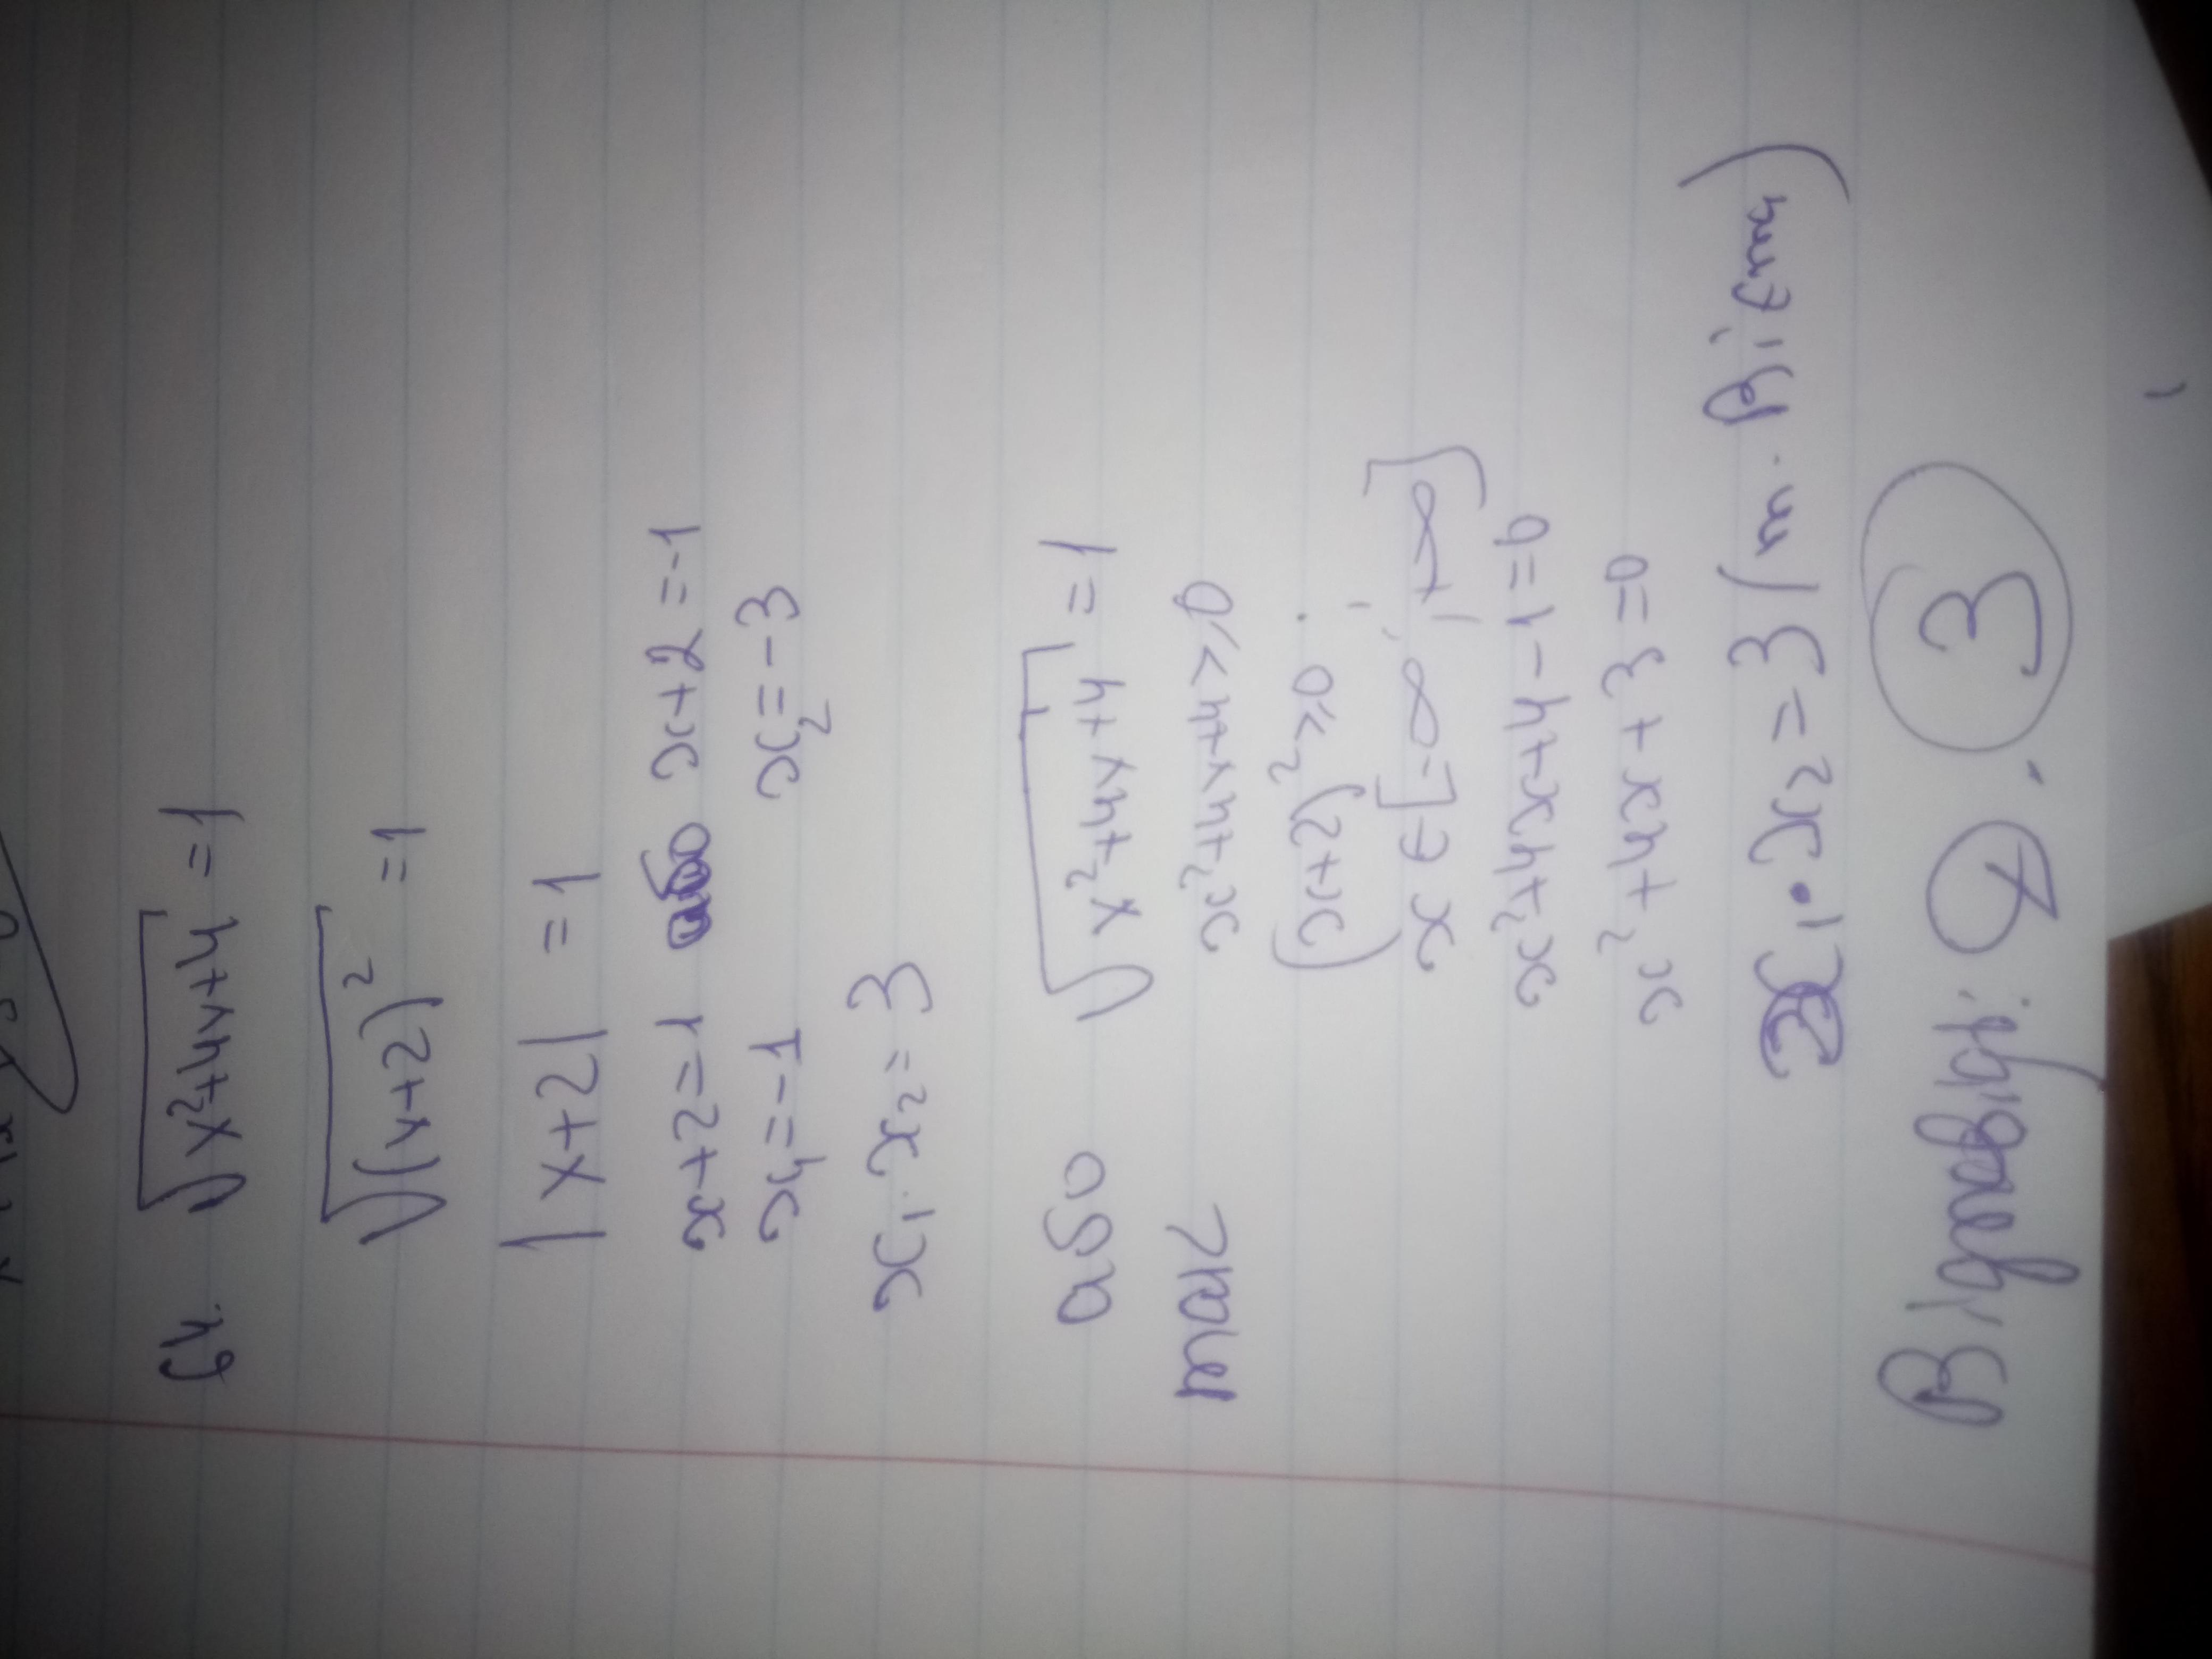 64. √x²+4x+4 = 1
√(x+2)² = 1
|x+2| = 1
x+2=1 або x+2=-1
x₁=-1 x₂=-3
x₁·x₂=3
або √x²+4x+4 = 1
x²+4x+4 ≥0
(x+2)² ≥0
x ∈ [-∞; +∞]
x²+4x+4-1=0
x²+4x+3=0
x₁·x₂=3 (т. Вієта)
Відповідь: 3